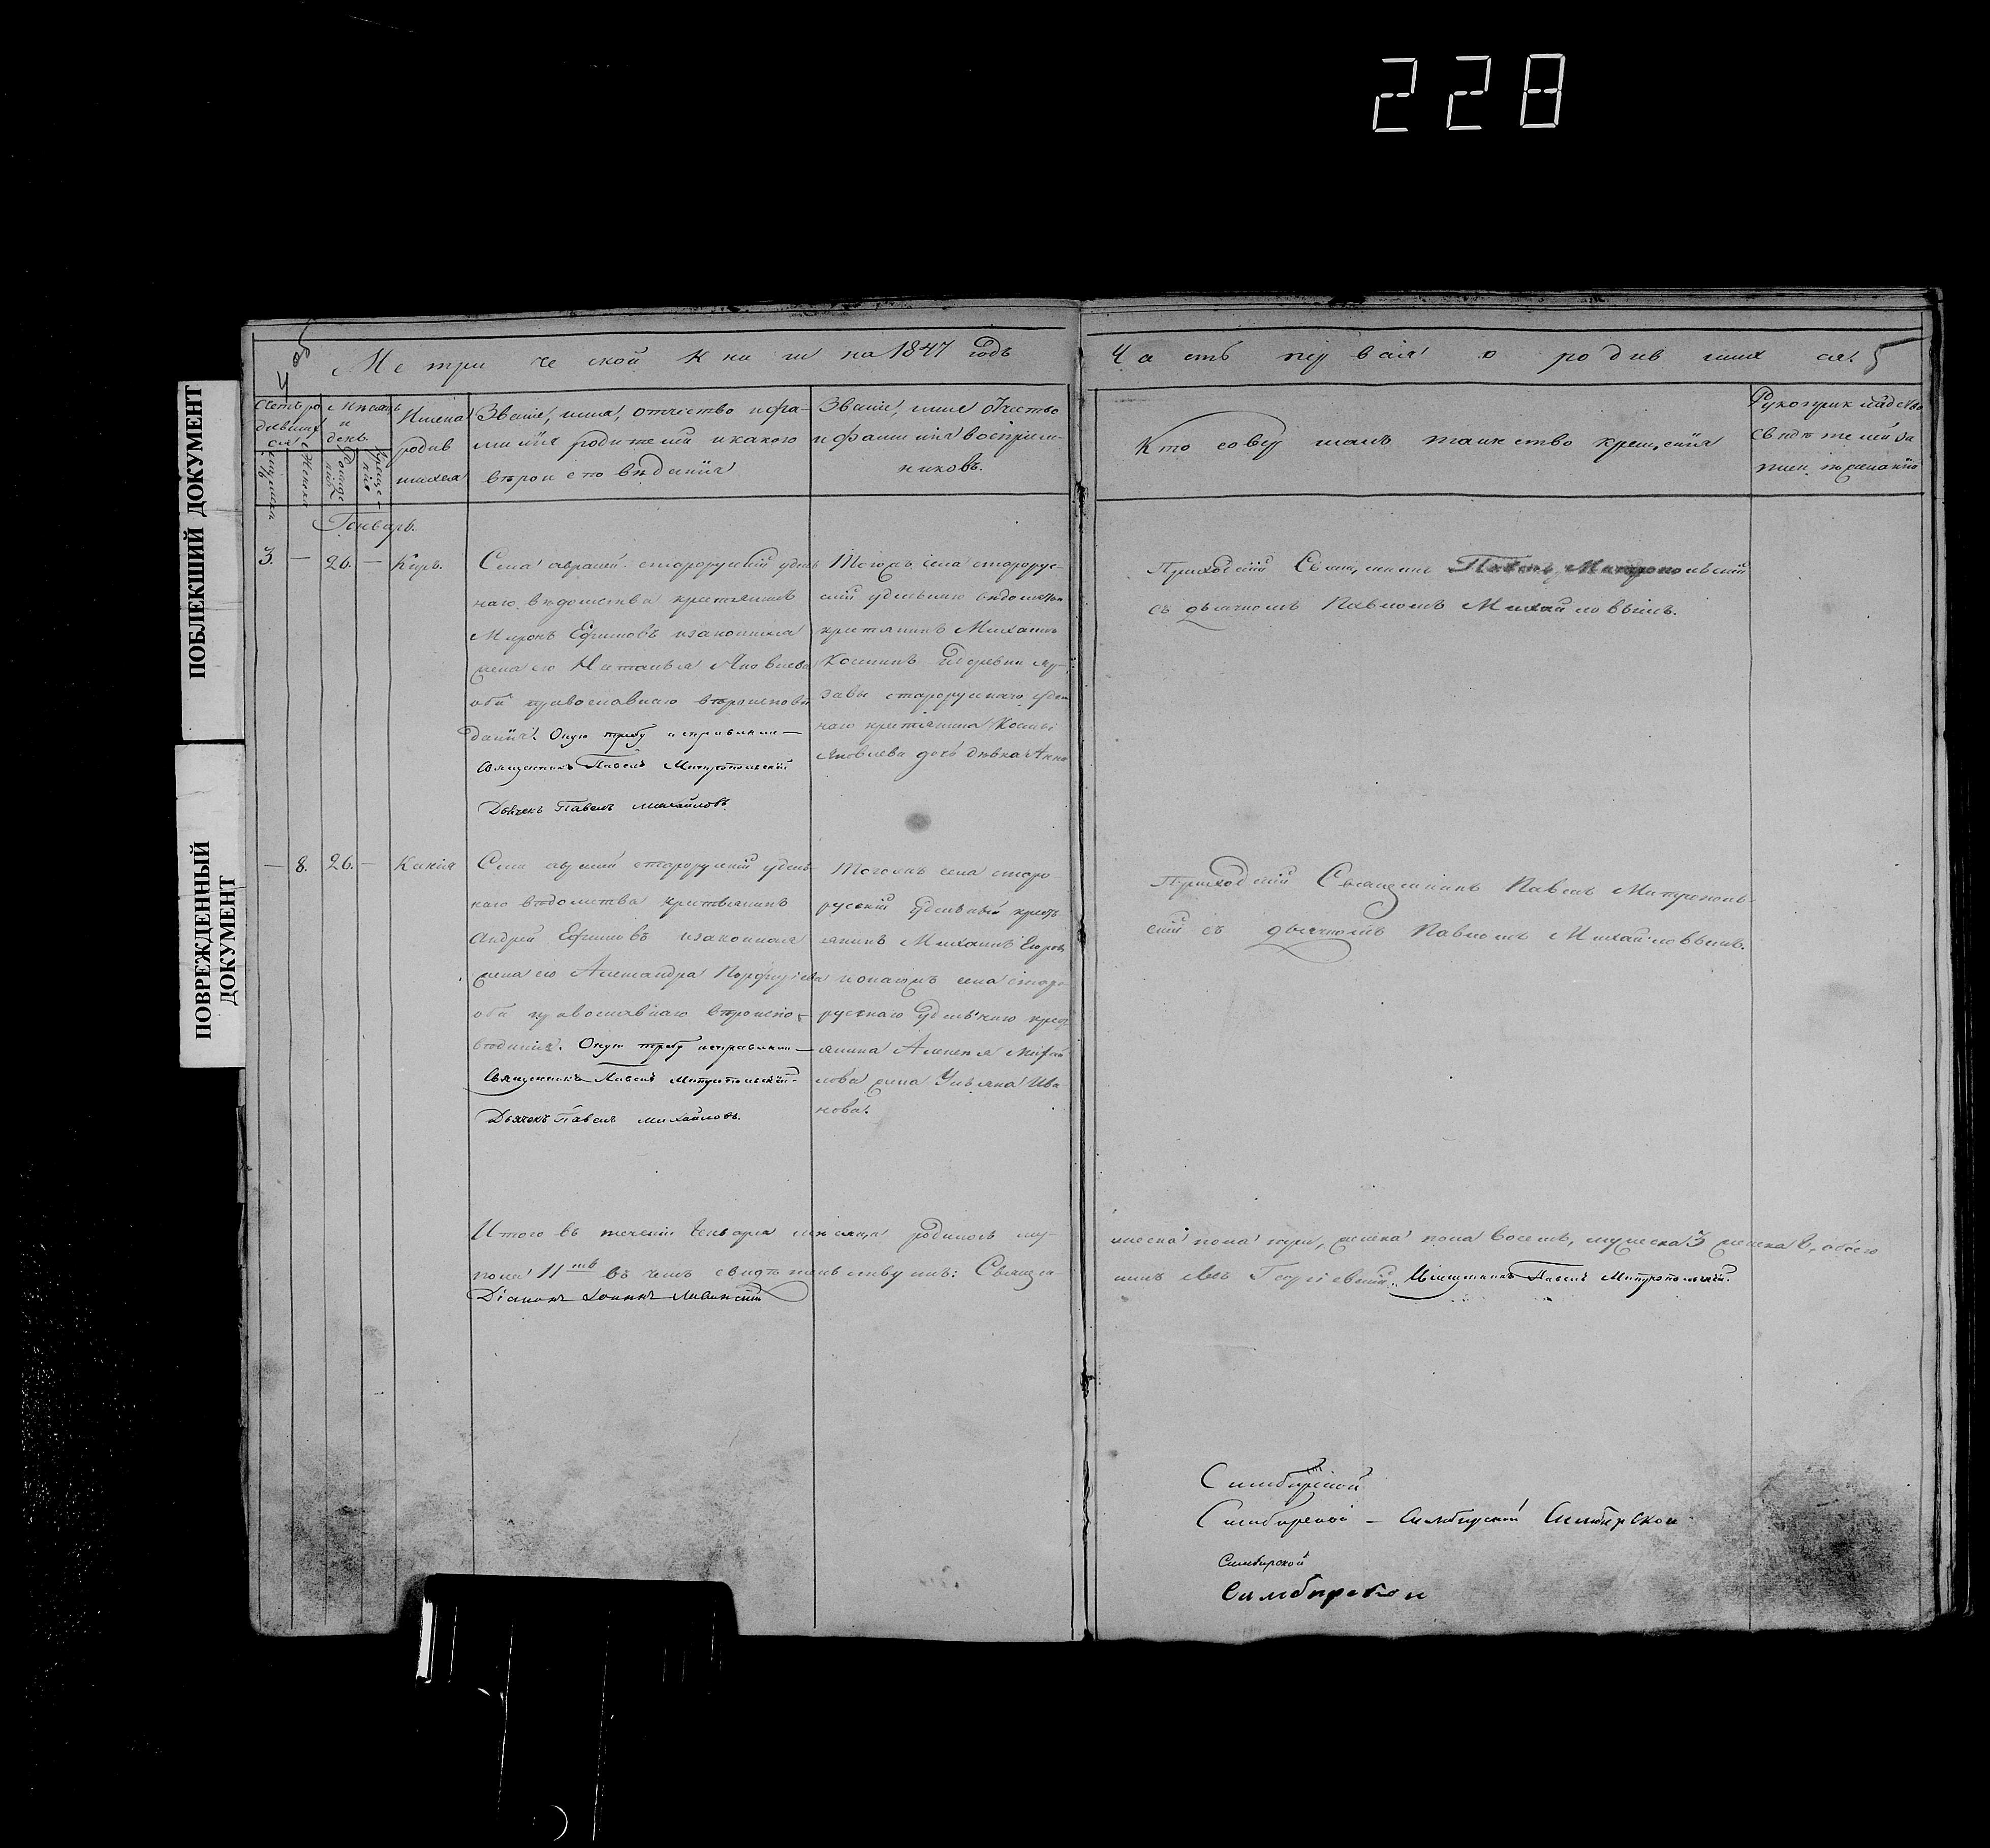 228
ПОБЛЕКШИЙ ДОКУМЕНТ
ПОВРЕЖДЕННЫЙ ДОКУМЕНТ
4 об
Метрической книги на 1847 годъ
Часть первая о родившихся. 5
Счетъ ро
дивших
ся
Мѣсяцъ
и
день.
Имена
родив
шихся
Званіе, имя, отчество и фа-
миліия родителей и какого
вѣроисповѣданія
Званіе, имя отчество
и фамилія воспріем-
никовъ.
Кто совершалъ таинство крещенія
Рукоприкладство
свидѣтелей за
писи по желанію
Генварь.
3. — 26. — Киръ.
Села старорускій удѣль
наго вѣдомства крестьянинъ
Миронъ Ефимовъ и законная
жена его Наталья Яковлева
оба православнаго вѣроисповѣ
данія. Оную требу исправляли —
Священникъ Павелъ Митропольскій
Дьячекъ Павелъ Михайловъ.
Тогожъ села старорус-
скій удѣльнаго вѣдомства
крестьянинъ Михаилъ
Косминъ деревни
старорускаго удѣль
наго крестьянина Космы
Яковлева дочь дѣвка Анна
Приходскій Священникъ Павелъ Митропольскій
съ дьячкомъ Павломъ Михайловымъ.
— 8. 26. — Ксенія
Села старорускій удѣль
наго вѣдомства крестьянинъ
Андрей Ефимовъ и законная
жена его Александра Порфирьева
оба православнаго вѣроиспо-
вѣданія. Оную требу исправляли —
Священникъ Павелъ Митропольскій.
Дьячекъ Павелъ Михайловъ.
Тогожъ села старо-
рускій удѣльный кресть
янинъ Михаилъ Егоровъ
села старо
рускаго удѣльнаго крест
янина Алексея Михай
лова жена Ульяна Ива
нова.
Приходскій Священникъ Павелъ Митрополь-
скій съ дьячкомъ Павломъ Михайловымъ.
Итого въ теченіи Генваря мѣсяца родилось му-
жеска пола три, женска пола восемь, мужеска 3 женска 8, обоего
пола 11ть въ чемъ свидѣтельствуемъ: Священ-
никъ Левъ Георгіевскій. Священникъ Павелъ Митропольскій.
Діаконъ Іоаннъ
Симбирской
Симбирской — Симбирской Симбирской
Симбирской
Симбирской